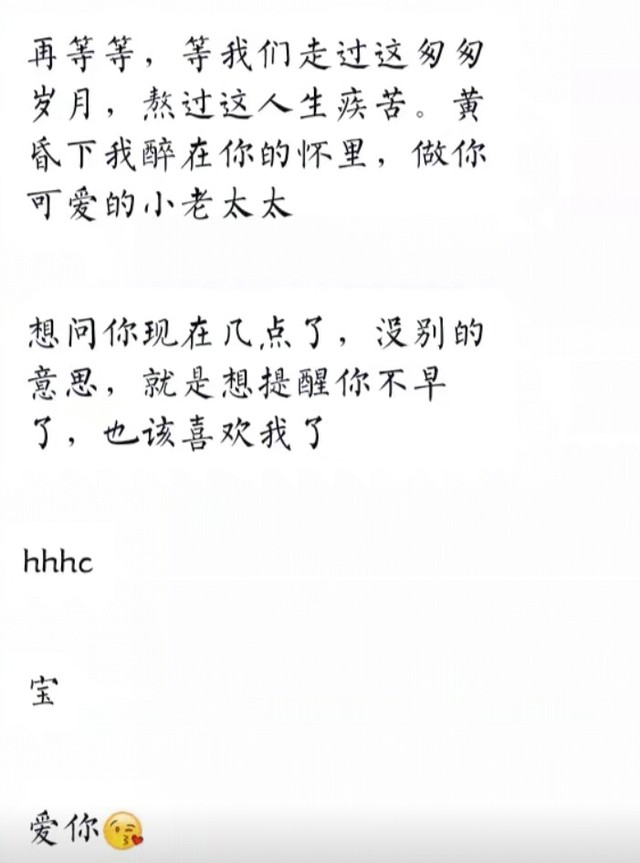 再等等，等我们走过这匆匆
岁月，熬过这人生疾苦。黄
昏下我醉在你的怀里，做你
可爱的小老太太
想问你现在几点了，没别的
意思，就是想提醒你不早
了，也该喜欢我了
hhhc
宝
爱你😘